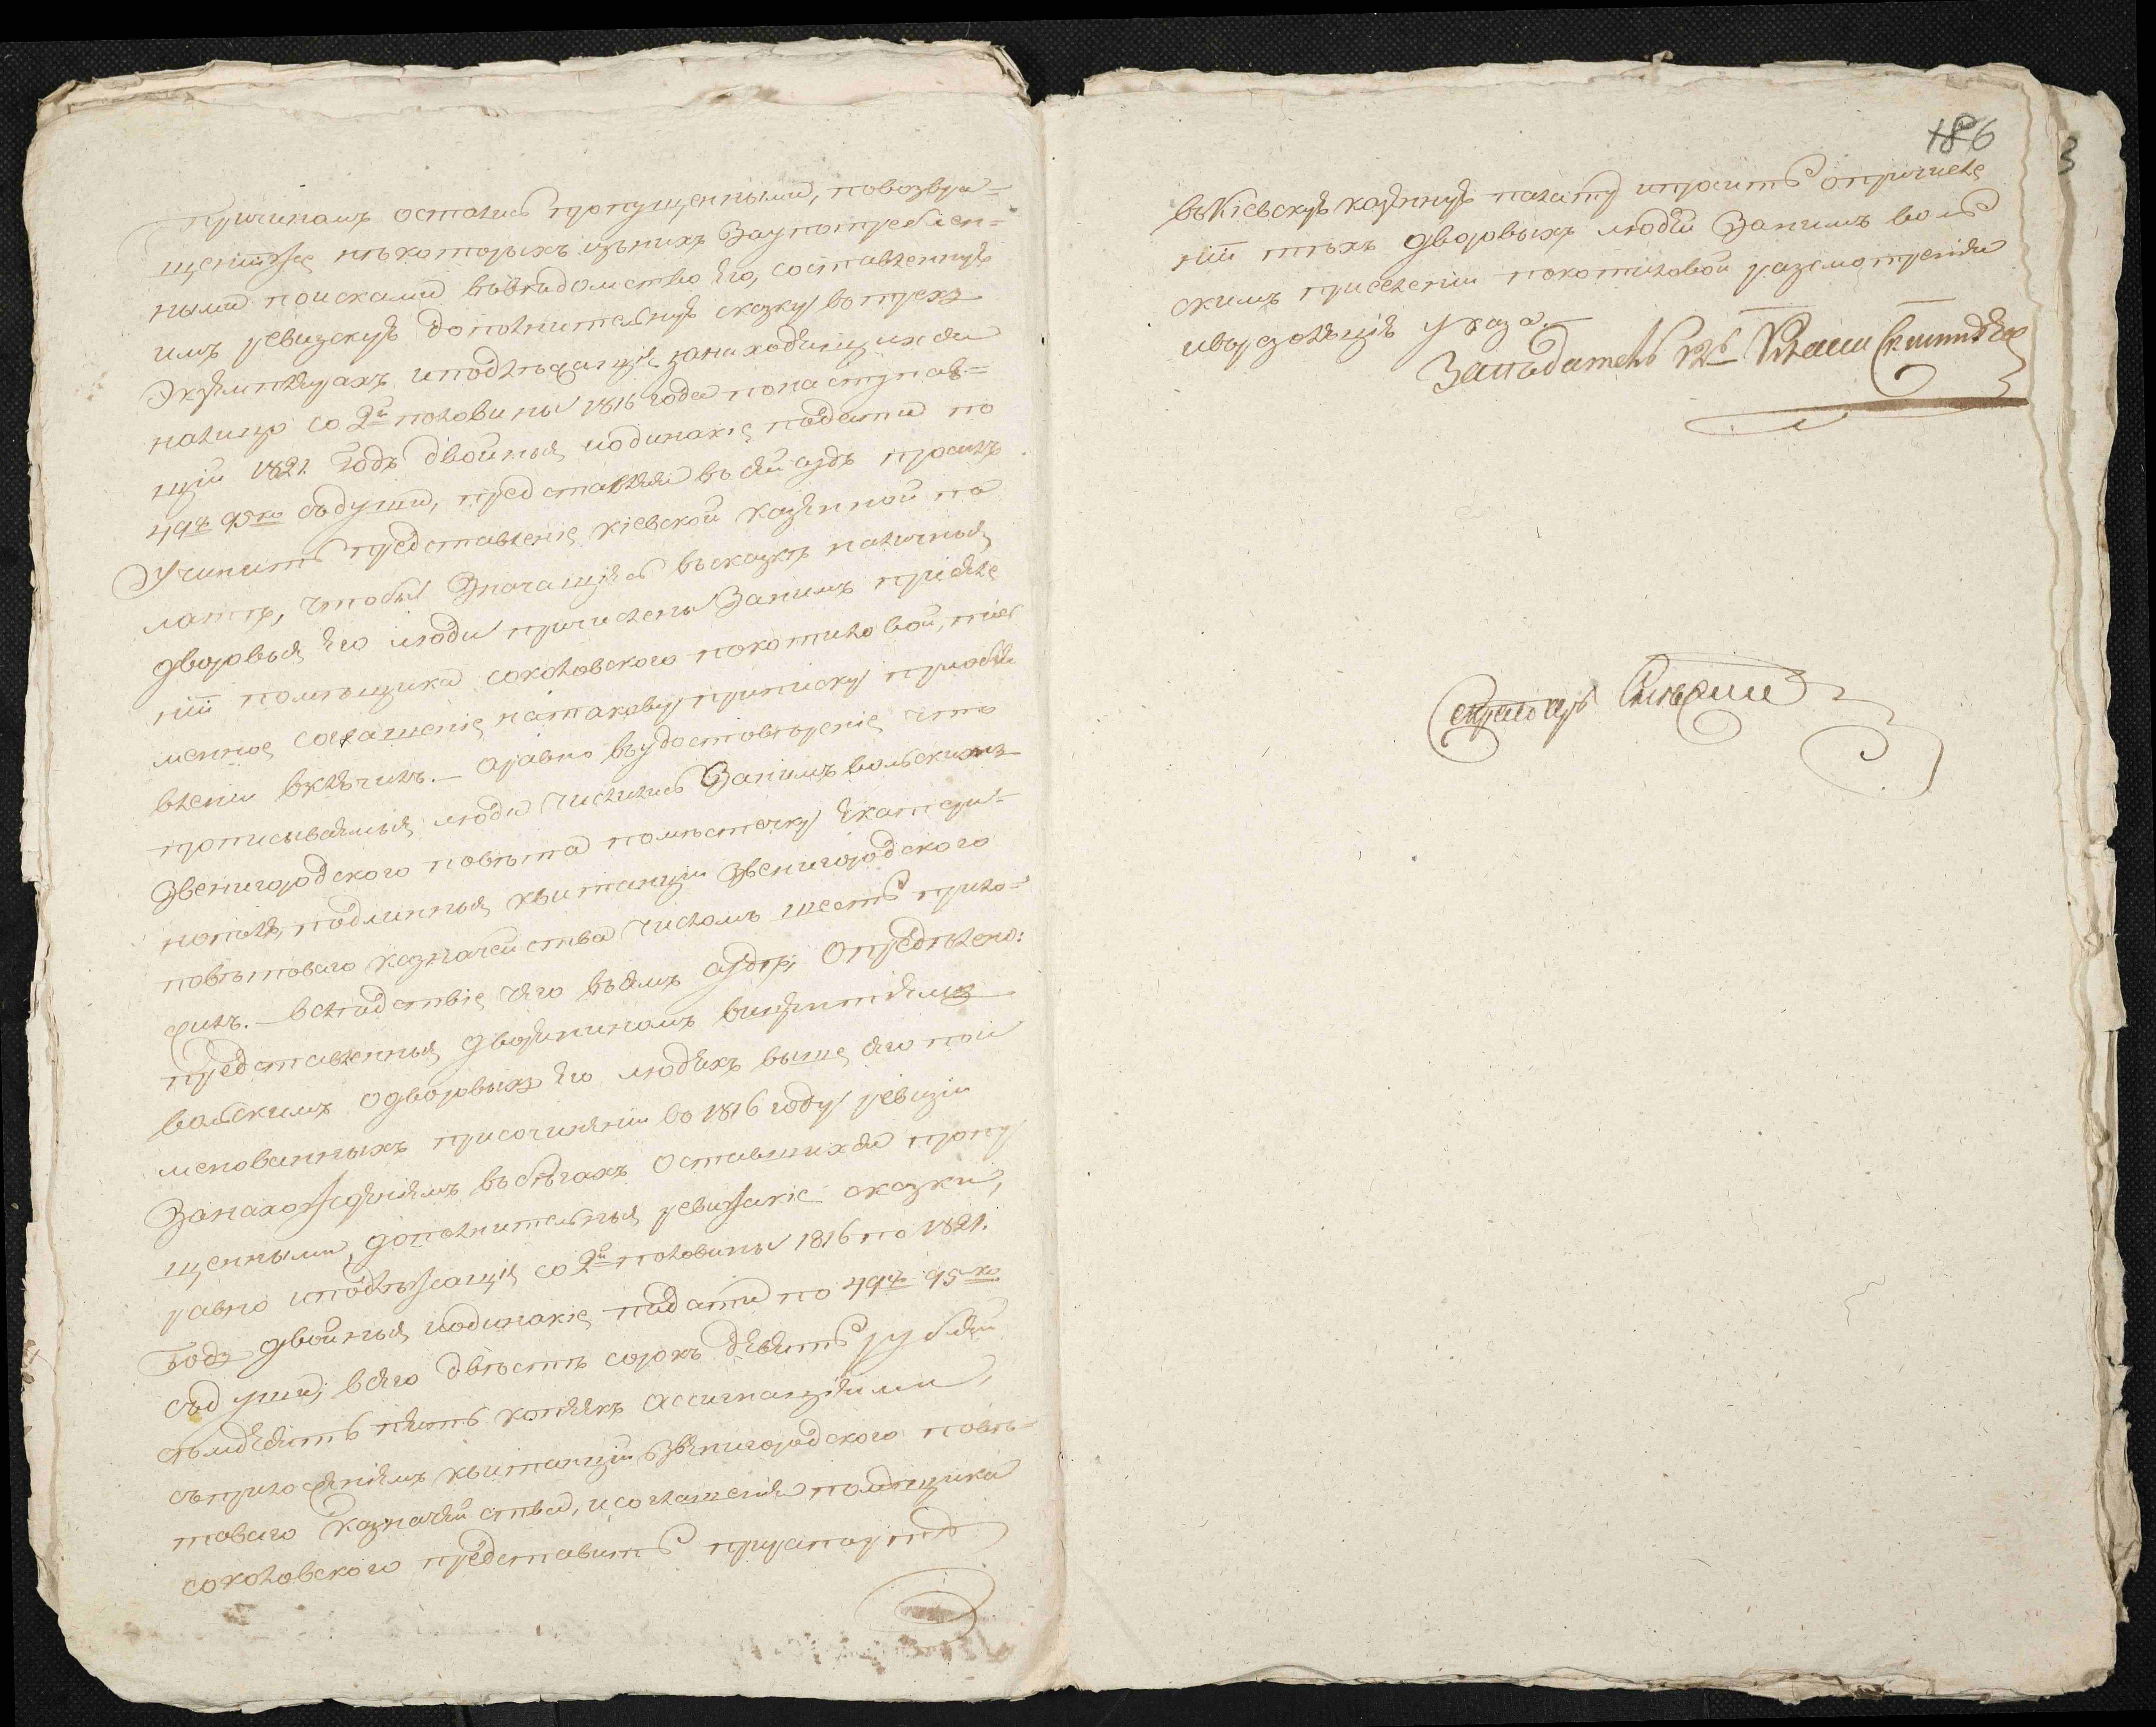 причинамъ остались пропущенными, повозвра=
щеніиже нѣкоторыхъ изъ нихъ заупотреблен=
ными поисками въвѣдомство его, составленную
имъ ревизскую дополнительную сказку вотрехъ
экземплярахъ иподлежащія занаходящихся
налицо со 2й половины 1816 года понаступив=
щій 1821 годъ двойныя иодинакіе подати по
49ру 95ко съдуши, представляя въ сей судъ просилъ
Учинить представленіе кіевской казенной па
латѣ, чтобы значащіясь въсказкѣ наличныя
дворовыя его люди причислены занимъ приселе
ніи помѣщика соколовского покотиловой,
менное соглашеніе натаковую приписку приобъя
вленіи включилъ. — аравно въудостовѣреніе что
прописываемыя люди числились занимъ вольскимъ
звенигородского повѣта помѣстечку екатери=
нополю, подлинныя квитанціи звенигородского
повѣтоваго казначейства числомъ шесть прило=
жилъ. — вслѣдствіе чего въсемъ судѣ, Опредѣлено:
представленныя дворяниномъ викентіемъ
вольскимъ одворовыхъ его людяхъ выше сего пои
менованныхъ присочиненіи во 1816 году ревизіи
Занахожденіемъ въбѣгахъ оставшихся пропу
щенными, дополнительныя ревизские сказки,
равно иподлежащія со 2й половины 1816 по 1821.
годъ двойныя иодинакіе подати по 49ру 95ко
съдуши, всего двѣсти сорокъ девять рублей
семдесятъ пять копѣекъ ассигнаціями,
съприложеніемъ квитанцій звенигородского повѣ=
товаго казначейства, исоглашенія помѣщика
соколовского представить прирапортѣ
186
3
въкіевскую казенную палату ипросить опричисле
ніи тѣхъ дворовыхъ людей занимъ воль
скимъ приселеніи покотиловой разсмотренія
иврезолюціи указа. —
Засѣдатель
Секретарь